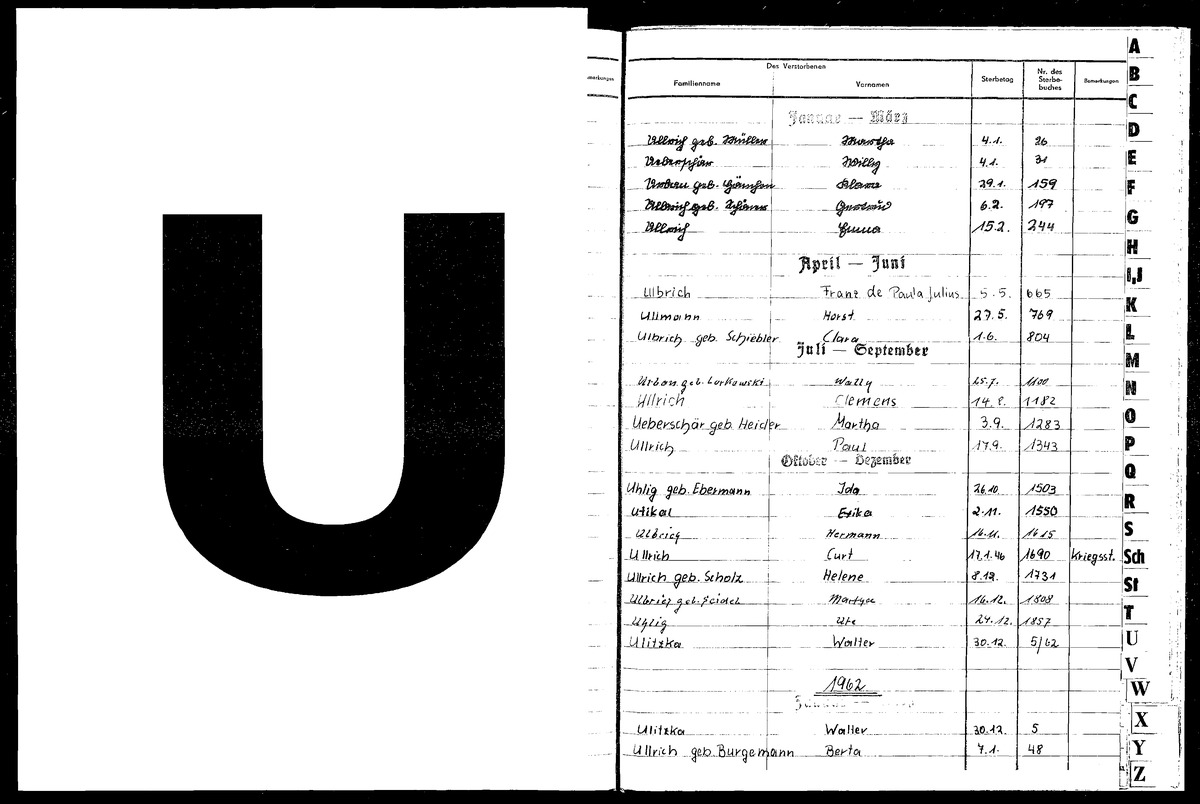 U
Bemerkungen
Des Verstorbenen
Familienname Vornamen Sterbetag Nr. des Sterbe-buches Bemerkungen
Januar — März
Ullrich geb. Müller Martha 4.1. 26
Ueberschär Willy 4.1. 31
Urban geb. Hänschen Klara 29.1. 159
Ullrich geb. Gertrud 6.2. 197
Ullrich Emma 15.2. 244
April — Juni
Ulbrich Franz de Paula Julius 5.5. 665
Ullmann Horst 27.5. 769
Ulbrich geb. Schiebler Clara 1.6. 804
Juli — September
Urban geb. Lorkowski Wally 25.7. 1100
Ullrich Clemens 14.8. 1182
Ueberschär geb. Heider Martha 3.9. 1283
Ullrich Paul 17.9. 1343
Oktober — Dezember
Uhlig geb. Ebermann Ida 26.10 1503
Utikal Erika 2.11. 1550
Ulbrich Hermann 16.11. 1615
Ullrich Curt 17.1.46 1690 Kriegsst.
Ullrich geb. Scholz Helene 8.12. 1731
Ulbrich geb. Seidel Martha 16.12. 1808
Uhlig Ute 24.12. 1857
Ulitzka Walter 30.12. 5/62
1962
Januar — März
Ulitzka Walter 30.12. 5
Ullrich geb. Burgemann Berta 7.1. 48
A
B
C
D
E
F
G
H
I,J
K
L
M
N
O
P
Q
R
S
Sch
St
T
U
V
W
X
Y
Z